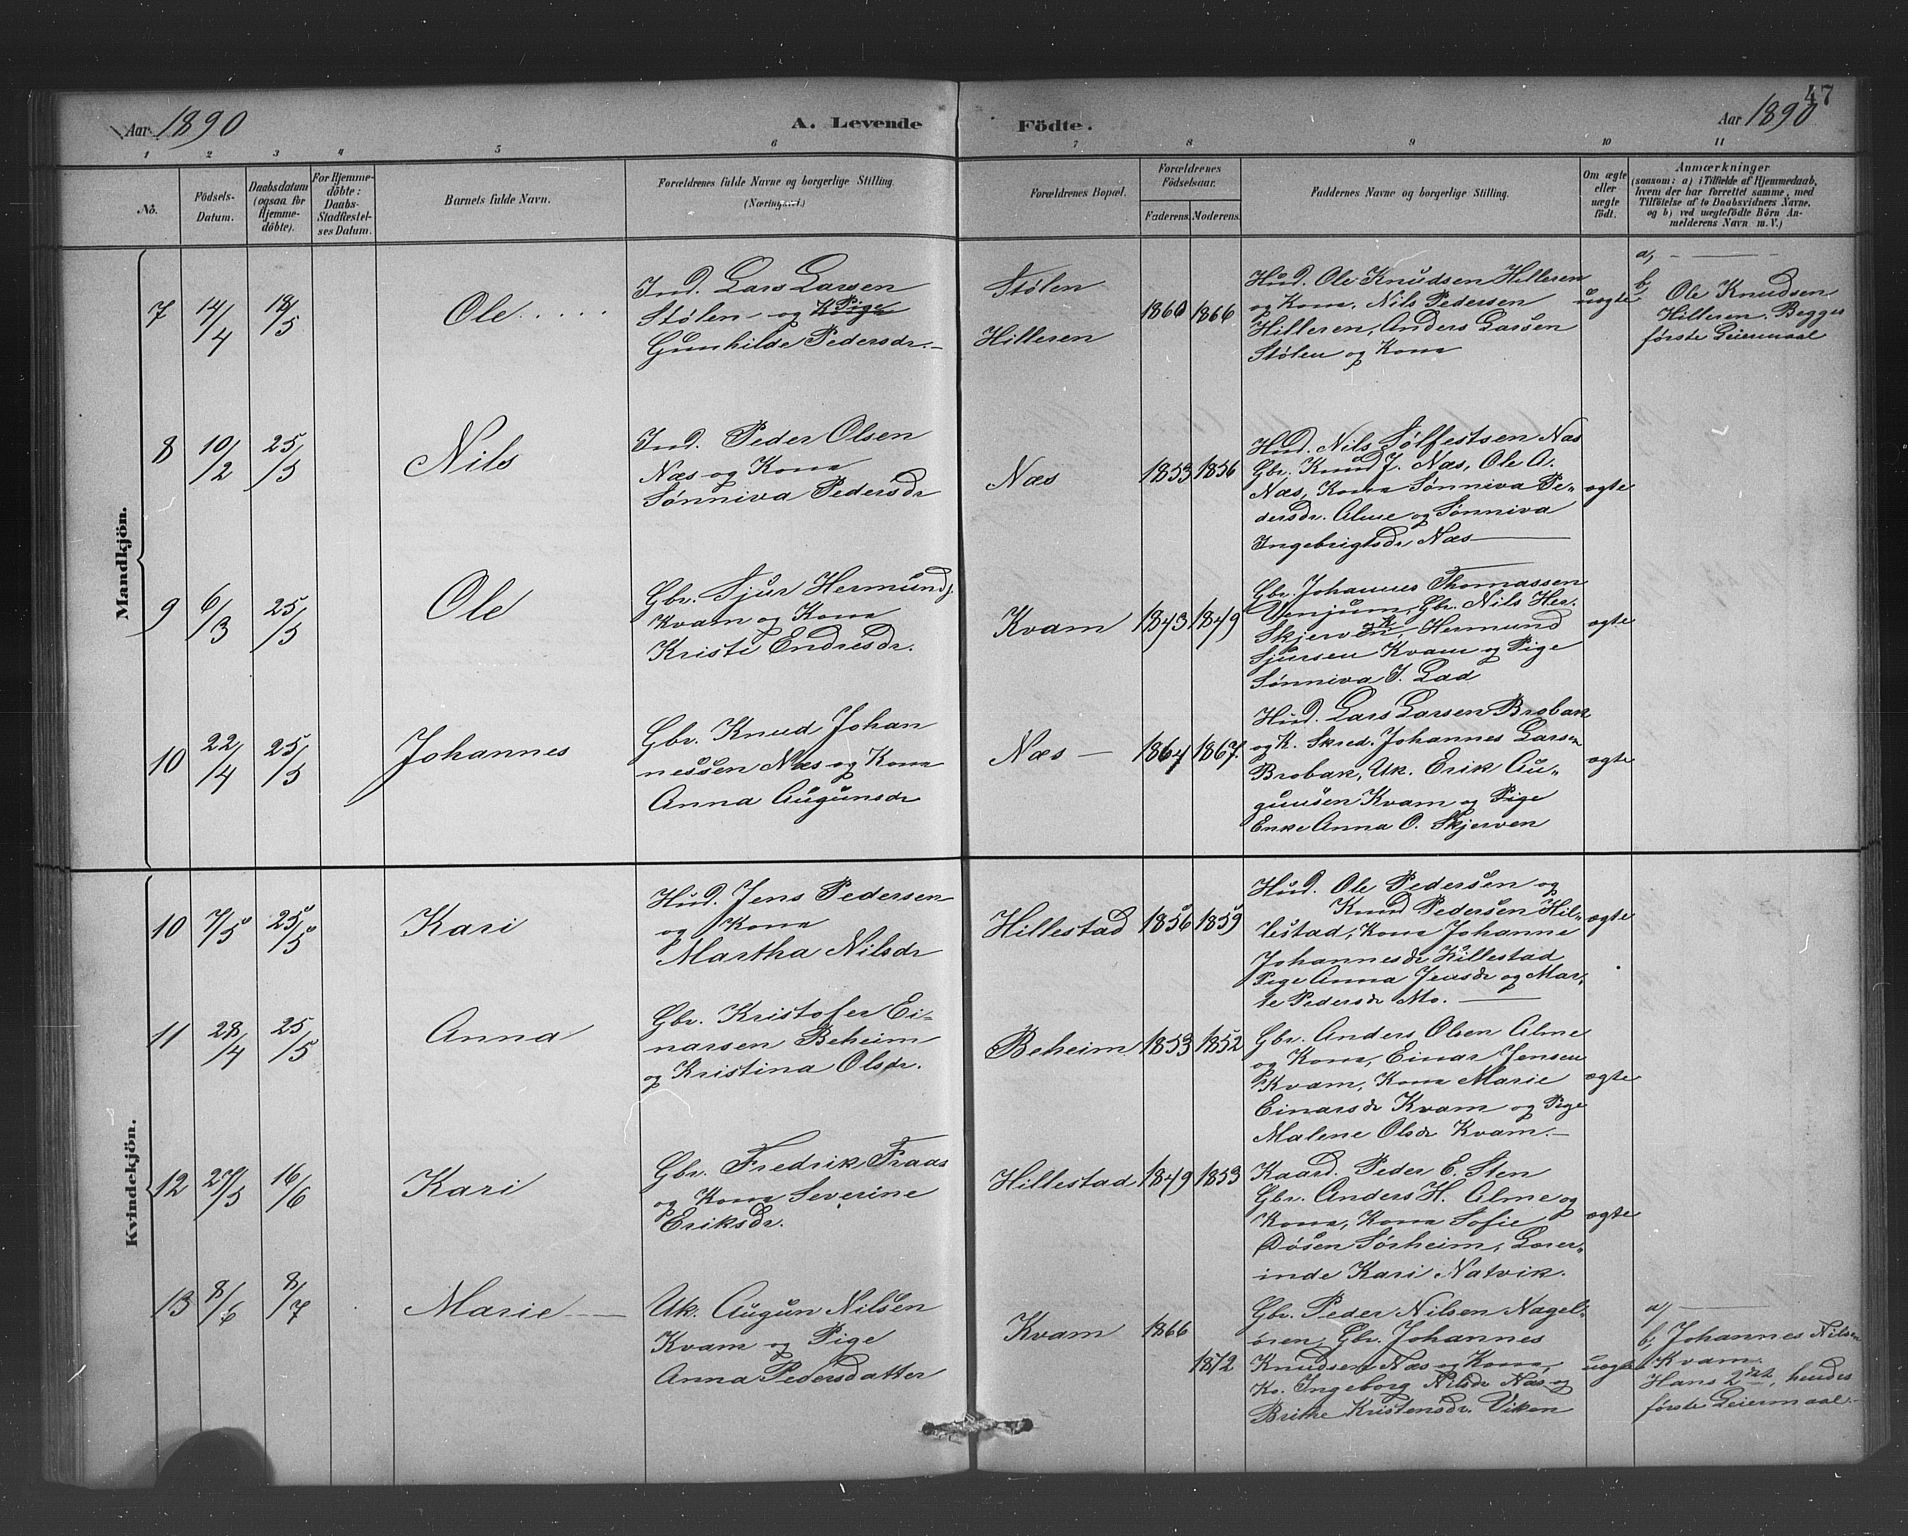 47
Aar 1890
A. Levende
Födte.
Aar 1890
1 2 3 4 5 6 7 8 9 10 11
No.
Födsels-
Datum.
Daabsdatum
(ogsaa for
Hjemme-
döbte).
For Hjemme-
döbte:
Daabs-
Stadfæstel-
ses Datum.
Barnets fulde Navn.
Forældrenes fulde Navne og borgerlige Stilling.
(Næringsvei.)
Forældrenes Bopæl.
Forældrenes
Födselsaar.
Faderens. Moderens.
Faddernes Navne og borgerlige Stilling.
Om ægte
eller
uægte
födt.
Anmærkninger
(saasom: a) i Tilfælde af Hjemmedaab,
hvem der har forrettet samme, med
Tilföielse af to Daabsvidners Navne,
og b) ved uægtefödte Börn An-
melderens Navn m. V.)
Mandkjön.
7 14/4 18/5 Ole
Ind. Lars Larsen
Stølen og Pige
Gunhilde Pedersdr.
Stølen
Hilleren
1860 1866
Hud. Ole Knudsen Hilleren
og Kona, Nils Pedersen
Hilleren, Anders Lassen
Stølen og Kona
uægte
a, —
b, Ole Knudsen
Hilleren. Begges
første Leiermaal
8 10/2 25/5 Nils
Ind. Peder Olsen
Næs og Kona
Sønniva Pedersdr
Næs
1853 1856
Hud. Nils Sølfestsen Næs
Gbr. Knud J. Næs, Ole A.
Næs, Kona Sønniva Pe-
dersdr. Alme og Sønniva
Ingebrigtsdr Næs
ægte
9 6/3 25/5 Ole
Gbr. Sjur Hermunds.
Kvam og Kona
Kristi Endresdr.
Kvam
1843 1849
Gbr. Johannes Thomassen
Venjum, Gbr. Nils Her.
Skjerven, Hermund
Sjursen Kvam og Pige
Sønniva I. Lad
ægte
10 22/4 25/5 Johannes
Gbr. Knud Johan
nessen Næs og Kona
Anna Augunsdr
Næs
1864 1867.
Hud. Lars Larsen Brobak
og K. Skred. Johannes Larsen
Brobak, Uk. Erik Au-
gunsen Kvam og Pige
Enke Anna O. Skjerven
ægte
Kvindekjön.
10 7/5 25/5 Kari
Hud. Jens Pedersen
og Kona
Martha Nilsdr
Hillestad
1856 1859
Hud. Ole Pedersen og
Knud Pedersen Hil-
lestad, Kona Johanne
Johannesdr Hillestad
Pige Anna Jensdr og Mar-
te Pedersdr Mo.
ægte
11 28/4 25/5 Anna
Gbr. Kristofer Ei-
narsen Beheim
og Kristina Olsdr.
Beheim
1853 1852
Gbr. Anders Olsen Alme
og Kona, Einar Jensen
Kvam, Kona Marie
Einarsdr Kvam og Pige
Malene Olsdr Kvam.
ægte
12 16/6 Kari
Gbr. Fredrik Fraas
og Kona Severine
Eriksdr.
Hillestad
1849 1853
Kaard. Peder E. Sten
Gbr. Anders H. Alme og
Kona, Kona Sofie
Døsen Sørheim, Lærer-
inde Kari Natvik.
ægte
13 8/6 8/7 Marie
Uk. Augun Nilsen
Kvam og Pige
Anna Pedersdatter
Kvam
1866
1872
Gbr. Peder Nilsen Nagel-
øren, Gbr. Johannes
Knudsen Næs og Kona,
Ko. Ingeborg Nilsdr Næs og
Brithe Kristensdr. Viken
uægte
a, —
b, Johannes Nilsen
Kvam.
Hans 2det, hendes
første Leiermaal.